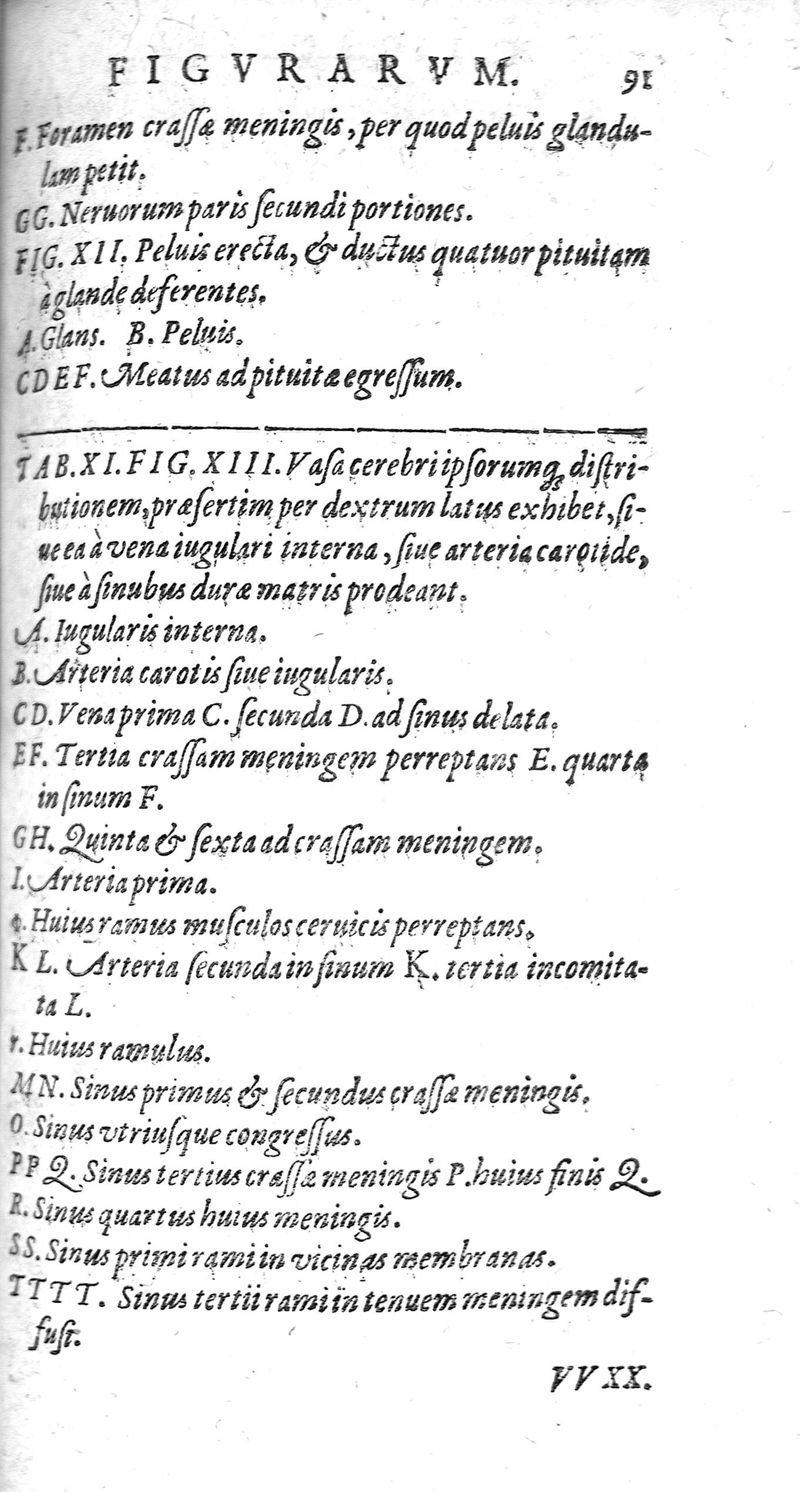 FIGVRARVM. 91
F. Foramen craſſæ meningis, per quod peluis glandu-
lam petit.
GG. Neruorum paris ſecundi portiones.
FIG. XII. Peluis erecta, & ductus quatuor pituitam
à glande deferentes.
A. Glans. B. Peluis.
CDEF. Meatus ad pituitæ egreſſum.
TAB. XI. FIG. XIII. Vaſa cerebri ipſorumq́ꝫ diſtri-
butionem, præſertim per dextrum latus exhibet, ſi-
ue ea à vena iugulari interna, ſiue arteria carotide,
ſiue à ſinubus duræ matris prodeant.
A. Iugularis interna.
B. Arteria carotis ſiue iugularis.
CD. Vena prima C. ſecunda D. ad ſinus delata.
EF. Tertia craſſam meningem perreptans E. quarta
in ſinum F.
GH. Quinta & ſexta ad craſſam meningem.
I. Arteria prima.
q. Huius ramus muſculos ceruicis perreptans.
KL. Arteria ſecunda in ſinum K. tertia incomita-
ta L.
r. Huius ramulus.
MN. Sinus primus & ſecundus craſſæ meningis.
O. Sinus vtriuſque congreſſus.
PPQ. Sinus tertius craſſæ meningis P. huius finis Q.
R. Sinus quartus huius meningis.
SS. Sinus primi rami in vicinas membranas.
TTTT. Sinus tertii rami in tenuem meningem dif-
fuſi.
VVXX.